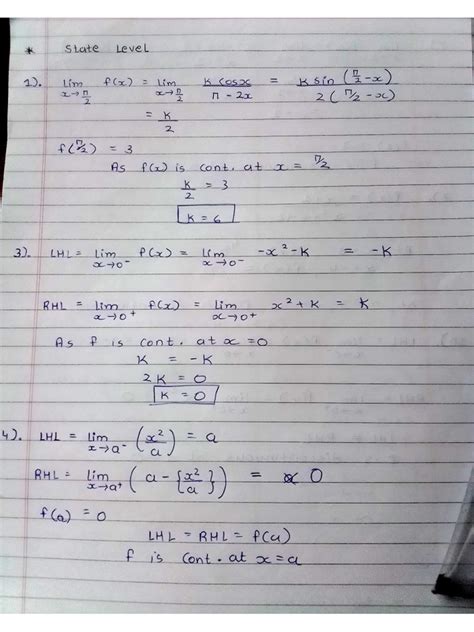 * State Level
1). lim x→π/2 f(x) = lim x→π/2 k cosx / π - 2x = k sin (π/2 - x) / 2 (π/2 - x)
= k/2
f(π/2) = 3
As f(x) is cont. at x = π/2
k/2 = 3
k = 6
3). LHL = lim x→0⁻ f(x) = lim x→0⁻ -x² - k = -k
RHL = lim x→0⁺ f(x) = lim x→0⁺ x² + k = k
As f is cont. at x = 0
k = -k
2k = 0
k = 0
4). LHL = lim x→a⁻ (x²/a) = a
RHL = lim x→a⁺ (a - {x²/a}) = 0
f(a) = 0
LHL = RHL = f(a)
f is cont. at x = a